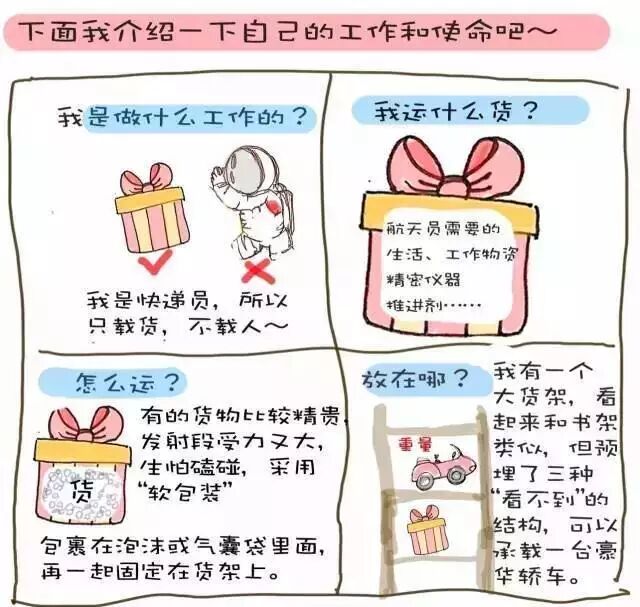 下面我介绍一下自己的工作和使命吧～
我是做什么工作的？
我是快递员，所以
只载货，不载人～
我运什么货？
航天员需要的
生活、工作物资
精密仪器
推进剂……
怎么运？
有的货物比较精贵，
发射段受力又大，
生怕磕碰，采用
“软包装”
货
包裹在泡沫或气囊袋里面，
再一起固定在货架上。
放在哪？
我有一个
大货架，看
起来和书架
类似，但预
埋了三种
“看不到”的
结构，可以
承载一台豪
华轿车。
重量